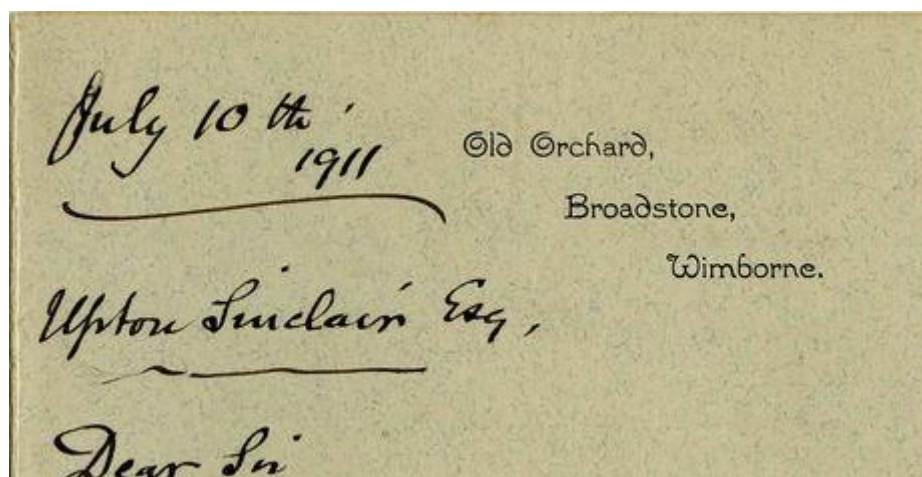 July 10th
1911
Old Orchard,
Broadstone,
Wimborne.
Upton Sinclair Esq,
Dear Sir